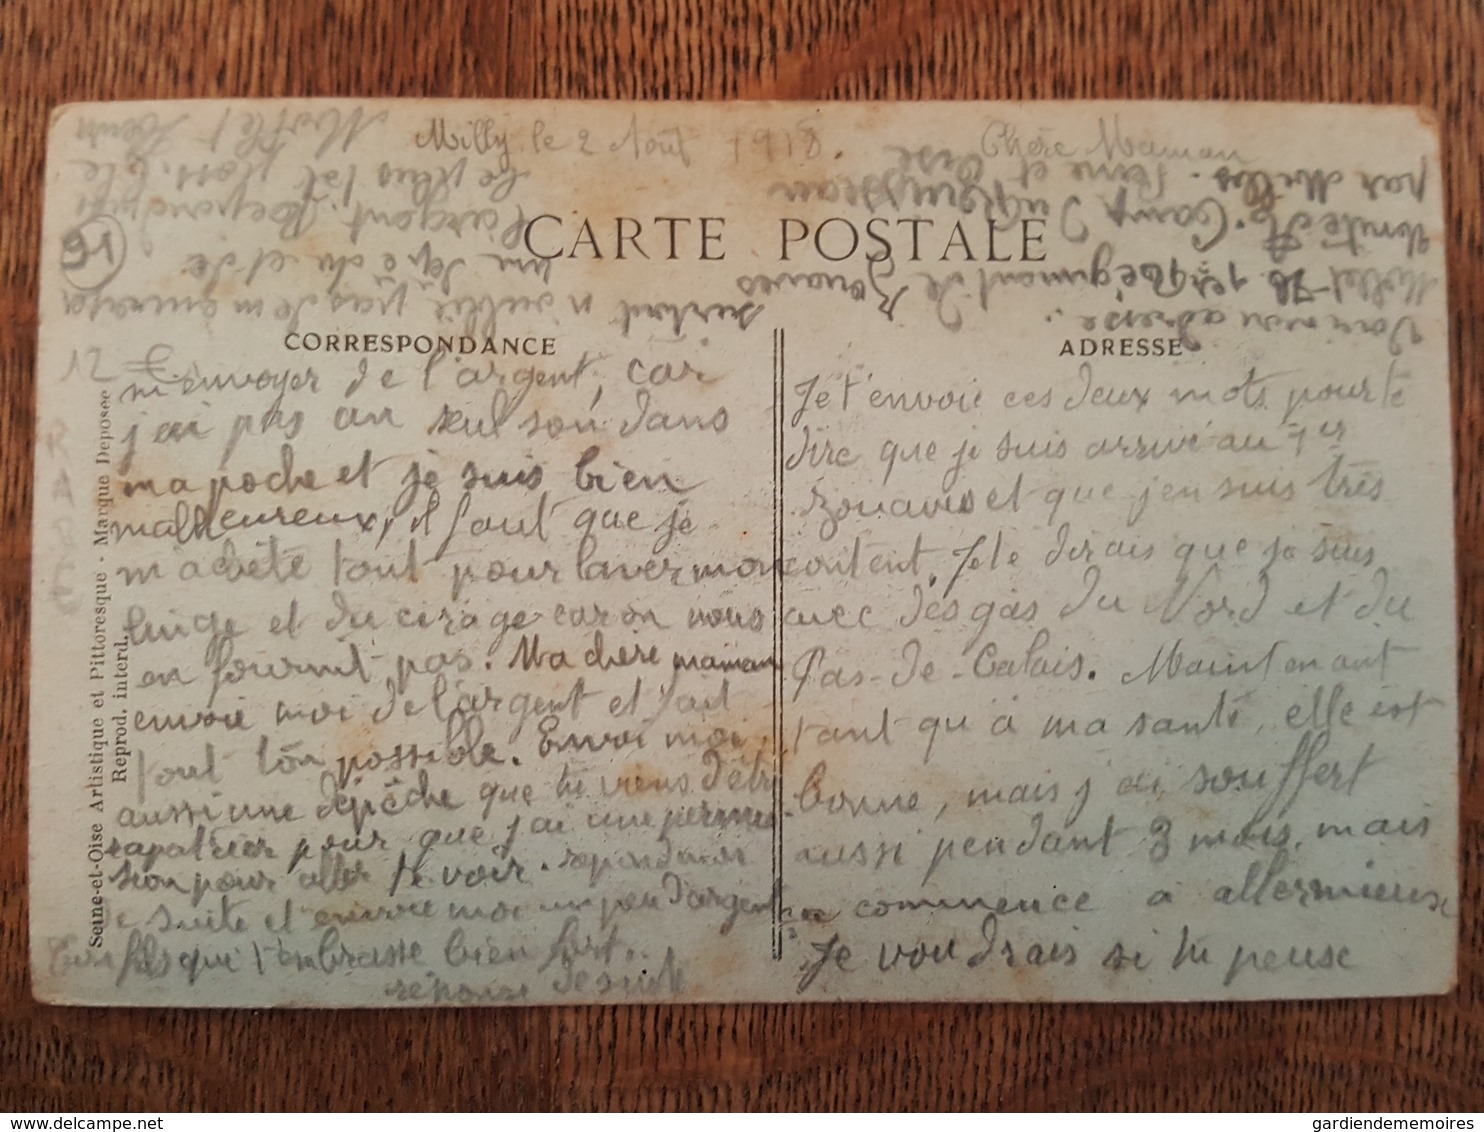 Milly le 2 Août 1918.
Chère Maman
CARTE POSTALE
CORRESPONDANCE
ADRESSE
Je t'envoie ces deux mots pour te
dire que je suis arrivé au 1er
zouaves et que j'en suis très
content. Je te dirais que je suis
avec des gas du Nord et du
Pas-de-Calais. Maintenant
tant qu'à ma santé, elle est
bonne, mais j'ai souffert
aussi pendant 3 mois, mais
ça commence à aller mieux
Je voudrais si tu peuse
m'envoyer de l'argent, car
j'ai pas un seul sou dans
ma poche et je suis bien
malheureux, il faut que je
m'achète tout pour laver mon
linge et du cirage car on nous
en fournit pas. Ma chère maman
envoie moi de l'argent et fait
tout ton possible. Envoi moi
aussi une dépêche que tu viens d'être
rapatrier pour que j'ai une permis
sion pour aller te voir. repond moi
de suite et envoie moi un peu d'argent
fils qui t'embrasse bien fort..
réponse de suite
Voici mon adresse..
Mollet 1er Régiment de Zouaves
Camp
par Milly. Seine et Oise
surtout n'oublie pas de m'envoyer
une dépêche et de
l'argent. Repond moi
le plus tôt possible
12 €
Seine-et-Oise Artistique et Pittoresque - Marque Deposée
Reprod. interd.
gardiendememoires